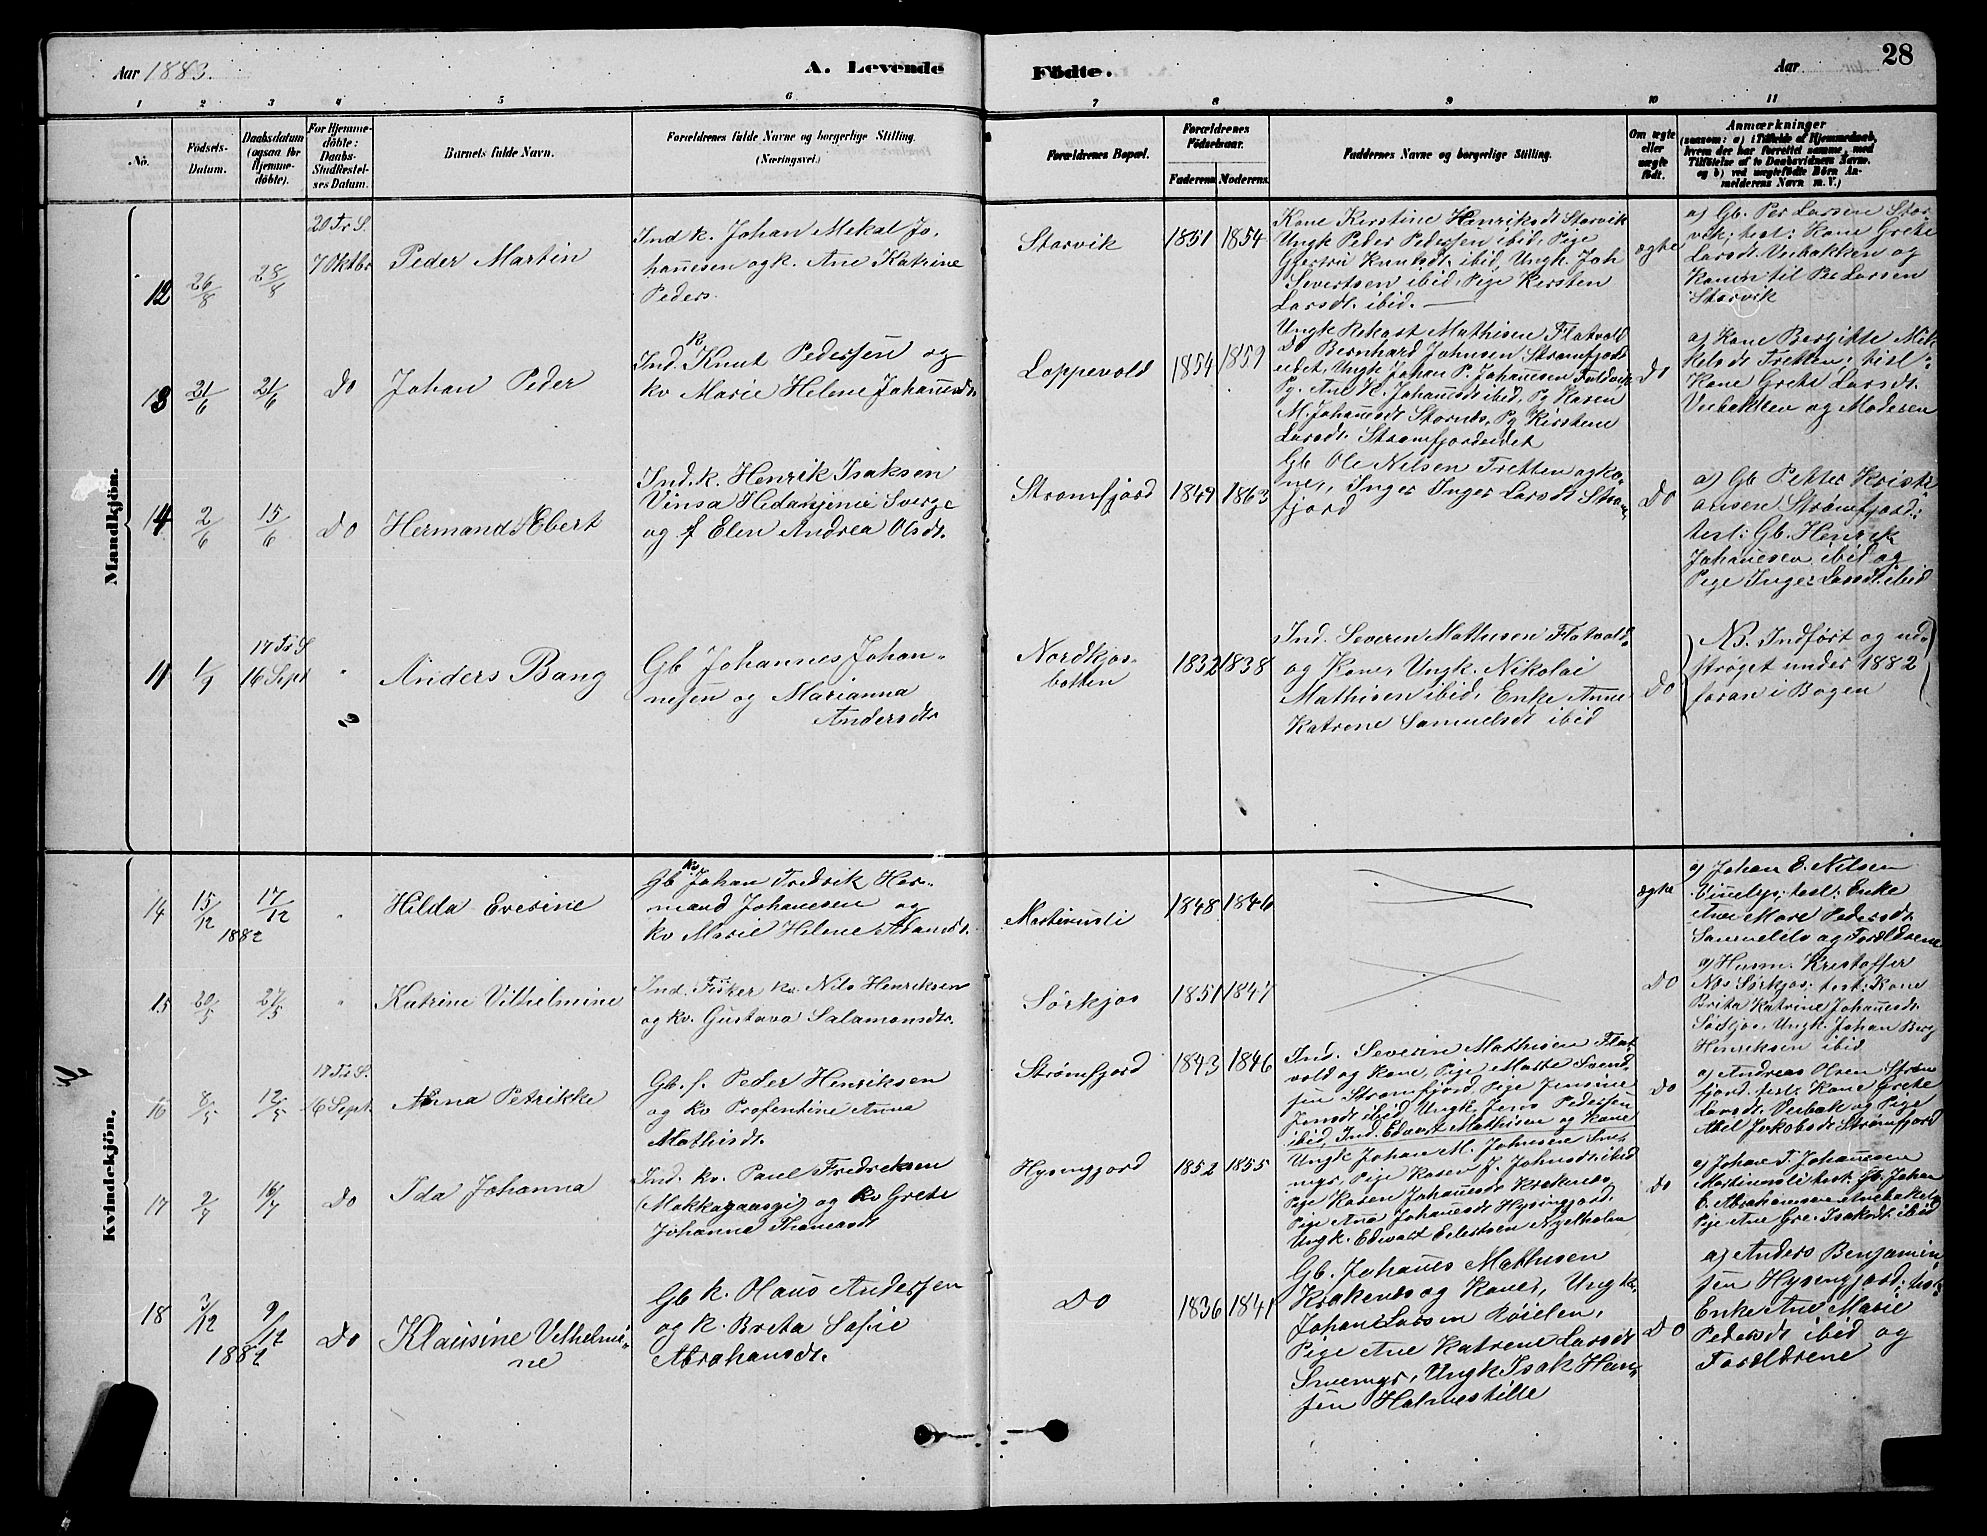 28
Aar 1883.
A. Levende
Födte.
Aar
1 2 3 4 5 6 7 8 9 10 11
No.
Födsels-
Datum.
Daabsdatum
(ogsaa for
Hjemme-
döbte).
For Hjemme-
döbte:
Daabs-
Stadfæstel-
ses Datum.
Barnets fulde Navn.
Forældrenes fulde Navne og borgerlige Stilling.
(Næringsvei.)
Forældrenes Bopæl.
Forældrenes
Födselsaar.
Faderens
Moderens.
Faddernes Navne og borgerlige Stilling.
Om ægte
eller
uægte
födt.
Anmærkninger
(saasom: a) i Tilfælde af Hjemmedaab,
hvem der har forrettet samme, med
Tilföielse af to Daabsvidners Navne,
og b) ved uægtefödte Börn An-
melderens Navn m. V.)
Mandkjön.
12
26/8
28/8
20 Tr S.
7 Oktbr
Peder Martin
Ind k. Johan Mekal Jo-
hanesen og k. Ane Katrine
Peders.
Storvik
1851
1854
Kone Kirstine Henriksdt Storvik
Ungk Peder Pedersen ibid, Pige
Gjertru Knudsdt. ibid, Ungk. Joh
Severtsen ibid, Pige Kersten
Larsdt. ibid.
ægte
a) Gb. Per Larsen Stor-
vik; test: Kone Grete
Larsdt. Verbakken og
Konen til Per Larsen
Storvik
13
21/6
21/6
Do
Johan Peder
Ind. k Knut Pedersen og
kv Marie Helene Johanesdt.
Loppevold
1854
1859
Ungk Rekart Mathisen Flatvold
Do Bernhard Johnsen Strømfjord
eidet, Ungk Johan P. Johanesen
Pg. Ane K. Johanesdt ibid. Pg Karen
M. Johanesdt Stornes, Pg Kirstene
Larsdt. Strømfjordeidet
Do
a) Kone Bergitte Mik-
kelsdt Tretten; test:
Kone Grete Larsdt.
Verbakken og Moderen
14
2/6
15/6
Do
Hermand Ebert
Ind. k. Henrik Isaksen
Vinsa Hedanjenie Sverge
og f Elen Andrea Olsdt.
Strømfjord
1849
1863
Gb Ole Nilsen Tretten og ko-
ne, Inger Inger Larsdt Strøm-
fjord
Do
a) Gb Petter Kristi-
ansen Strømfjord;
test: Gb. Henrik
Johanesen ibid og
Pige Inger Larsdt. ibid
11
1/9
17 Tr S
16 Sept
"
Anders Bang
Gb Johannes Johan-
nesen og Marianna
Andersdtr
Nordkjos-
botten
1832
1838
Ind. Severin Mathisen Flatvold
og Kone, Ungk. Nikolai
Mathisen ibid, Enke Anne
Katrene Samuelsdt ibid
Do
NB. Indført og ud-
strøget under 1882
foran i Bogen
Kvindekjön.
14
15/12
1882
17/12
"
Hilda Evesine
Gb kv Johan Fredrik Her-
mand Johanesen og
kv Marie Helene Adamsdt.
Mortensnli
1848
1846
ægte
a) Johan E. Nilsen
test: Enke
Ane Mare Pedersdt.
og Forældrene
15
20/5
27/5
"
Katrine Vilhelmine
Ind. Fisker kv. Nils Henriksen
og kv. Gustava Salamonsdtr.
Sørkjos
1851
1847
Do
a) Husm. Kristoffer
Nils Sørkjos; test: Kone
Brita Katrine Johanesdt
Sørkjos, Ungk. Johan Berg
Henriksen ibid
16
8/5
12/5
17 Tr S.
16 Sept.
Anna Petrikke
Gb. f. Peder Henriksen
og kv Profentine Anna
Mathisdt.
Strømfjord
1843
1846
Ind. Severin Mathisen Flat-
vold og Kone, Pige Marte Svend-
sen Strømfjord, Pige Jensine
Jensdt ibid, Ungk. Jens Pedersen
ibid, Ind. Edvart Mathisen og Kone
Do
a) Andreas Olsen Strøm-
fjord, test: Kone Grete
Larsdt. Verbak og Pige
Abel Jakobsdt Strømfjord
17
2/7
16/7
Do
Ida Johanna
Ind. kv. Paul Fredreksen
(Mokkagaasgi) og kv Grete
Johanna Thomasdt
Hysingjord
1852
1855
Ungk Johan M. Johnsen Sne-
nigs, Pige Karen J. Johnsdt. ibid
Pige Karen Johanesdt Kraknes,
Pige Ane Johanesdt Hysingjord,
Ungk. Edvart Eilertsen
Do
a) Johan F. Johanesen
Mortensnli test: Gb. Johan
E. Abrahamsen
Pige Ane Gre. Isaksdt. ibid
18
3/12
1882
9/12
Do
Klausine Vilhelmi-
ne
Gb k. Hans Andersen
og k. Breta Sofie
Abrahamsdt.
Do
1836
1841
Gb. Johanes Mathisen
Kraknes og Kone, Ungk.
Johan Larsen Røielen,
Pige Ane Katrene Larsdt
Ungk Isak Han-
sen
Do
a) Anders Benjamin-
sen Hysingjord; test:
Enke Ane Marie
Pedersdt ibid og
Forældrene